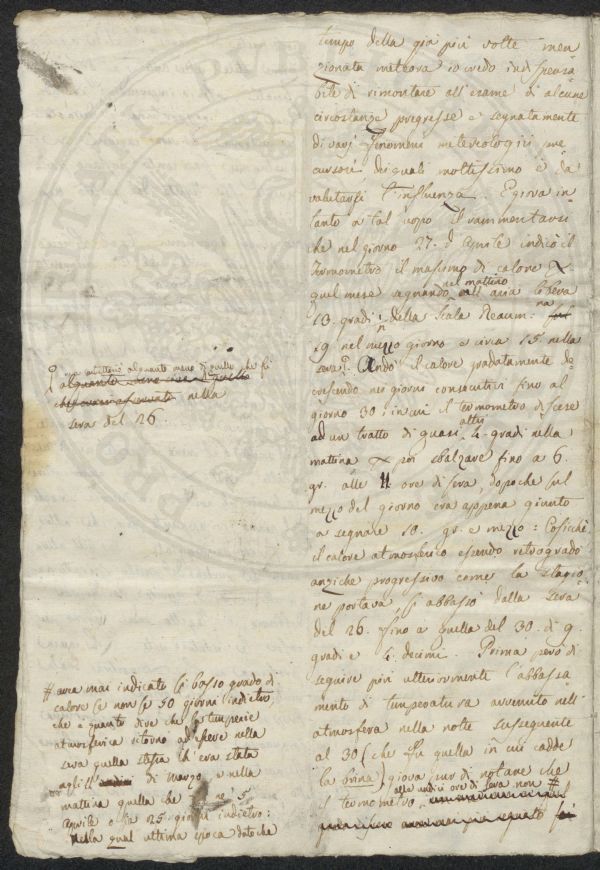 tempo della già più volte men
zionata meteora io credo indispensa
bile di rimontare all'esame di alcune
circostanze pregresse e segnatamente
di varj fenomeni metereologici pre
cursori dei quali moltissimo è da
valutarsi l'influenza. E giova in
tanto a tal uopo il rammentarsi
che nel giorno 27. d'Aprile indicò il
Termometro il massimo di calore
quel mese segnando nel mattino all'aria libera
13. gradi della Scala Reaum:
19 nel mezzo giorno e circa 15. nella
sera. Andò il calore gradatamente de
crescendo nei giorni consecutivi fino al
giorno 30 in cui il termometro discese
ad un tratto di quasi altri 4 gradi nella
mattina poi sbalzare fino a 6.
gr. alle 11 ore di sera, dopoche sul
mezzo del giorno era appena giunto
a segnare 10. gr. e mezzo: Cosicchè
il calore atmosferico essendo retrogrado
anziche progressivo come la stagio
ne portava, si abbassò dalla sera
del 26. fino a quella del 30. di 9.
gradi e 4. decimi. Prima però di
seguire più ulteriormente l'abbassa
mento di temperatura avvenuto nell'
atmosfera nella notte susseguente
al 30 (che fu quella in cui cadde
la brina) giova pur di notare che
il termometro alle undici ore di sera non #
ma alquanto meno di quello che fu
nella
sera del 26.
# avea mai indicato sì basso grado di
calore se non se 50 giorni indietro,
che è quanto dire che la temperie
atmosferica ritornò ad essere nella
sera quella stessa ch'era stata
di Marzo, e nella
mattina quella che ne' 5
Aprile o sia 25 giorni indietro:
nella qual ultima epoca datoche